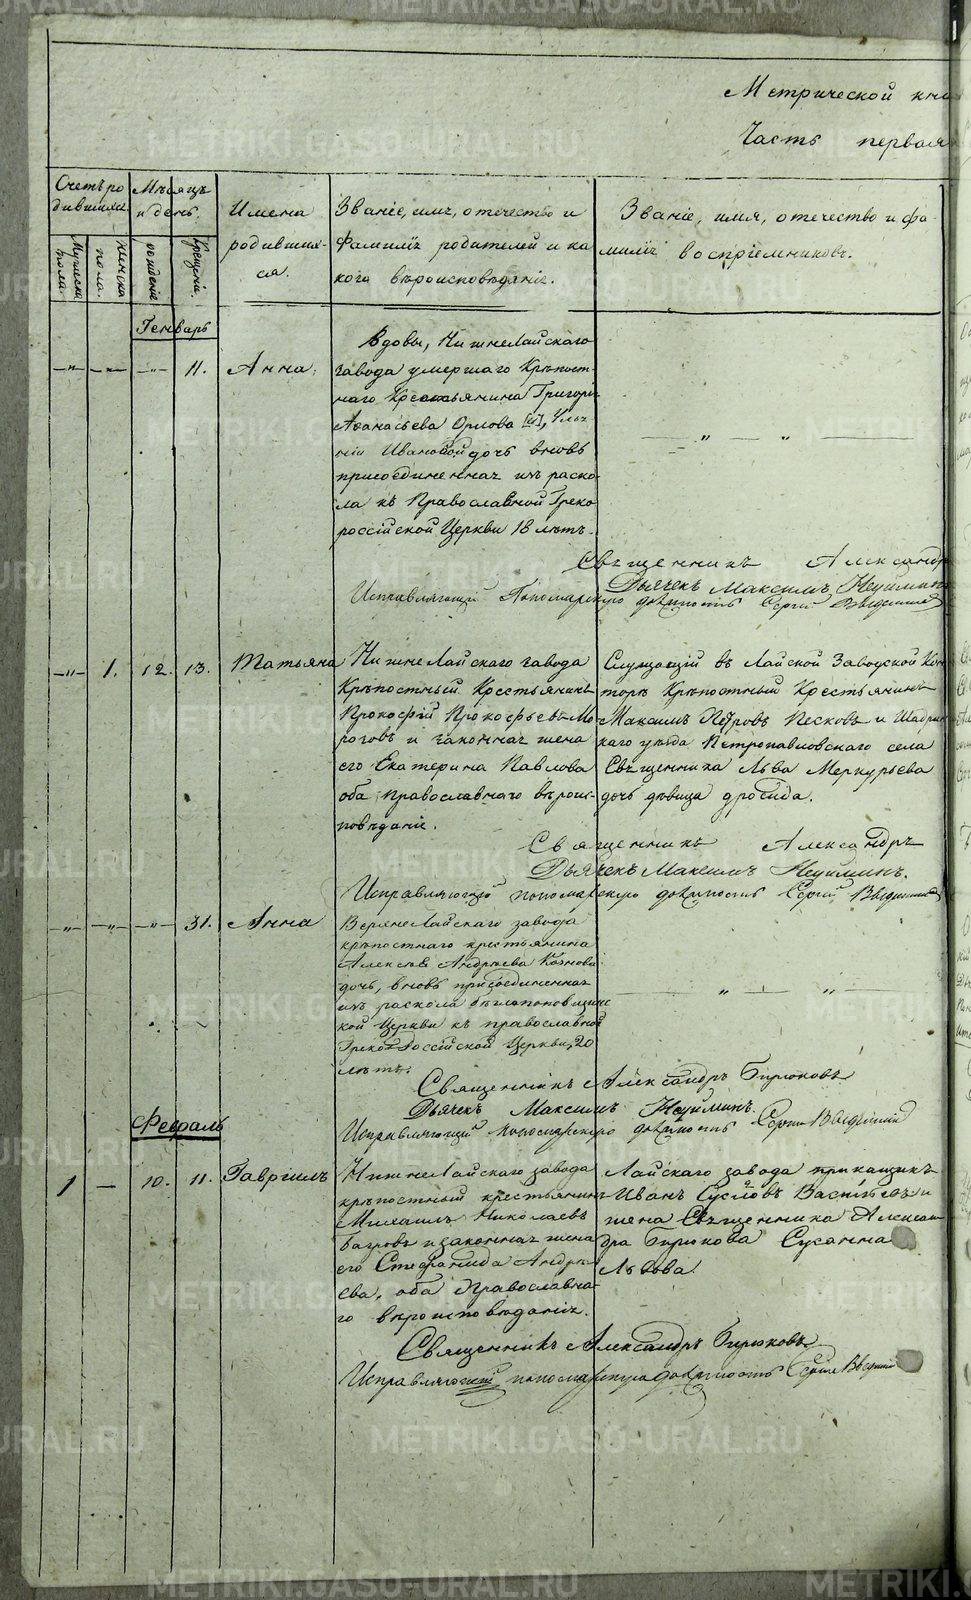 Метрической кни
Часть первая
Счетъ ро
дившихся
Мѣсяцъ
и день.
Имена
родивших-
ся.
Званіе, имя, отечество и
Фамилія родителей и ка
кого вѣроисповѣданія.
Званіе, имя, отечество и фа-
милія воспріемниковъ.
Мужеска
пола.
Женска
пола.
рожденія
крещенія.
Генварь
11. Анна.
Вдовы, НижнеЛайскаго
завода умершаго Крѣпост-
наго Крестьянина Григорія
Аѳанасьева Орлова
Ивановой дочь вновь
присоединенная изъ раско-
ла къ Православной Греко
россійской Церкви 18 лѣтъ.
Священникъ Александръ
Дьячекъ Максимъ Неуйминъ
Исправляющій Пономарскую должность Сергій
1. 12. 13. Татьяна
НижнеЛайскаго завода
Крѣпостный Крестьянинъ
Прокофій Прокофьевъ Мо
роговъ и законная жена
его Екатерина Павлова
оба православнаго вѣроис-
повѣданія.
Служащій въ Лайской Заводской Кон
торѣ Крѣпостный Крестьянинъ
Максимъ Петровъ Песковъ и Шадрин
скаго уѣзда Петропавловскаго села
Священника Льва Меркурьева
дочь дѣвица Дросида.
Священникъ Александръ
Дьячекъ Максимъ Неуйминъ.
Исправляющій пономарскую должность Сергій
31. Анна
ВерхнеЛайскаго завода
крѣпостнаго крестьянина
Алексѣя Андреева
дочь, вновь присоединенная
изъ раскола бѣглопоповщин
ской Церкви къ православной
Греко-Россійской Церкви, 20
лѣтъ.
Священникъ Александръ Бирюковъ
Дьячекъ Максимъ Неуйминъ.
Исправляющій пономарскую должность Сергій
Февраль
1 — 10. 11. Гавріилъ
НижнеЛайскаго завода
крѣпостный крестьянинъ
Михаилъ Николаевъ
Багровъ и законная жена
его Стефанида Андре
ева, оба Православна-
го вѣроисповѣданія.
Лайскаго завода прикащикъ
Иванъ Сусловъ Васильевъ и
жена Священника Алексан
дра Бирюкова Сусанна
Львова.
Священникъ Александръ Бирюковъ
Исправляющій пономарскую должность Сергій
METRIKI.GASO-URAL.RU